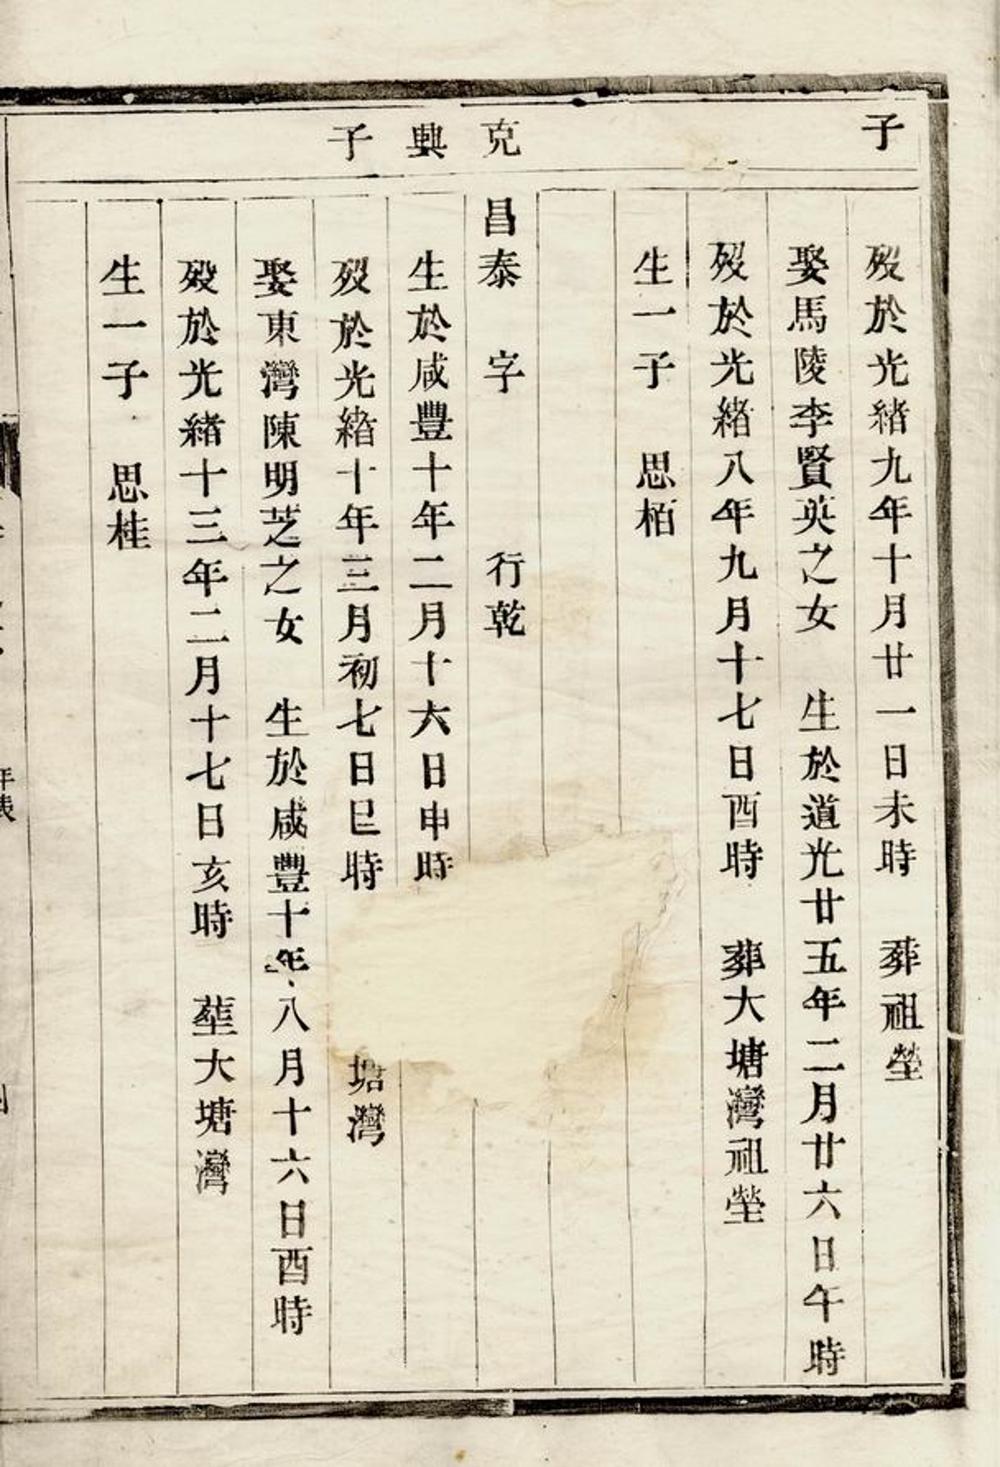 子
歿於光緒九年十月廿一日未時 葬祖塋
娶馬陵李賢英之女 生於道光廿五年二月廿六日午時
歿於光緒八年九月十七日酉時 葬大塘灣祖塋
生一子 思栢
克興子
昌泰 字 行乾
生於咸豐十年二月十六日申時
歿於光緒十年三月初七日巳時 塘灣
娶東灣陳明芝之女 生於咸豐十年八月十六日酉時
歿於光緒十三年二月十七日亥時 塟大塘灣
生一子 思桂